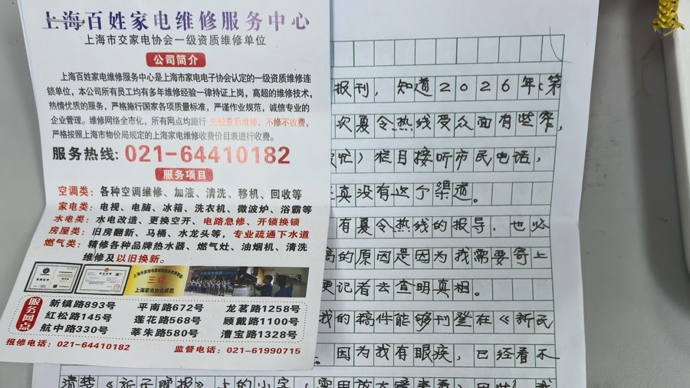 上海百姓家电维修服务中心
上海市交家电协会一级资质维修单位
公司简介
上海百姓家电维修服务中心是上海市家电电子协会认定的一级资质维修连
锁单位，本公司所有员工均有多年维修经验一律持证上岗，高超的维修技术，
热情优质的服务，严格施行国家各项质量标准，严谨作业规范，诚信专业的
企业管理。维修网络全市化，所有网点均施行 先检查后维修、不修不收费，
严格按照上海市物价局规定的上海家电维修收费价目表进行收费。
服务热线: 021-64410182
服务项目
空调类：各种空调维修、加液、清洗、移机、回收等
家电类：电视、电脑、冰箱、洗衣机、微波炉、浴霸等
水电类：水电改造、更换空开、电路急修、开锁换锁
房屋类：旧房翻新、马桶、水龙头等，专业疏通下水道
燃气类：精修各种品牌热水器、燃气灶、油烟机、清洗
维修及以旧换新。
服务网点
新镇路893号 平南路672号 龙茗路1258号
红松路145号 莲花路568号 顾戴路1100号
航中路330号 莘朱路580号 漕宝路1328号
报修电话：021-64410182 监督电话：021-61990715
报刊，知道2026年(第
次夏令热线受众面有些窄，
忙）栏目接听市民电话，
真没有这个渠道。
有夏令热线的报导，也必
的原因是因为我需要寄上
更记者去查明真相。
我的稿件能够刊登在《新民
因为我有眼疾，已经看不
清楚《新民晚报》上的小字，需用放大镜